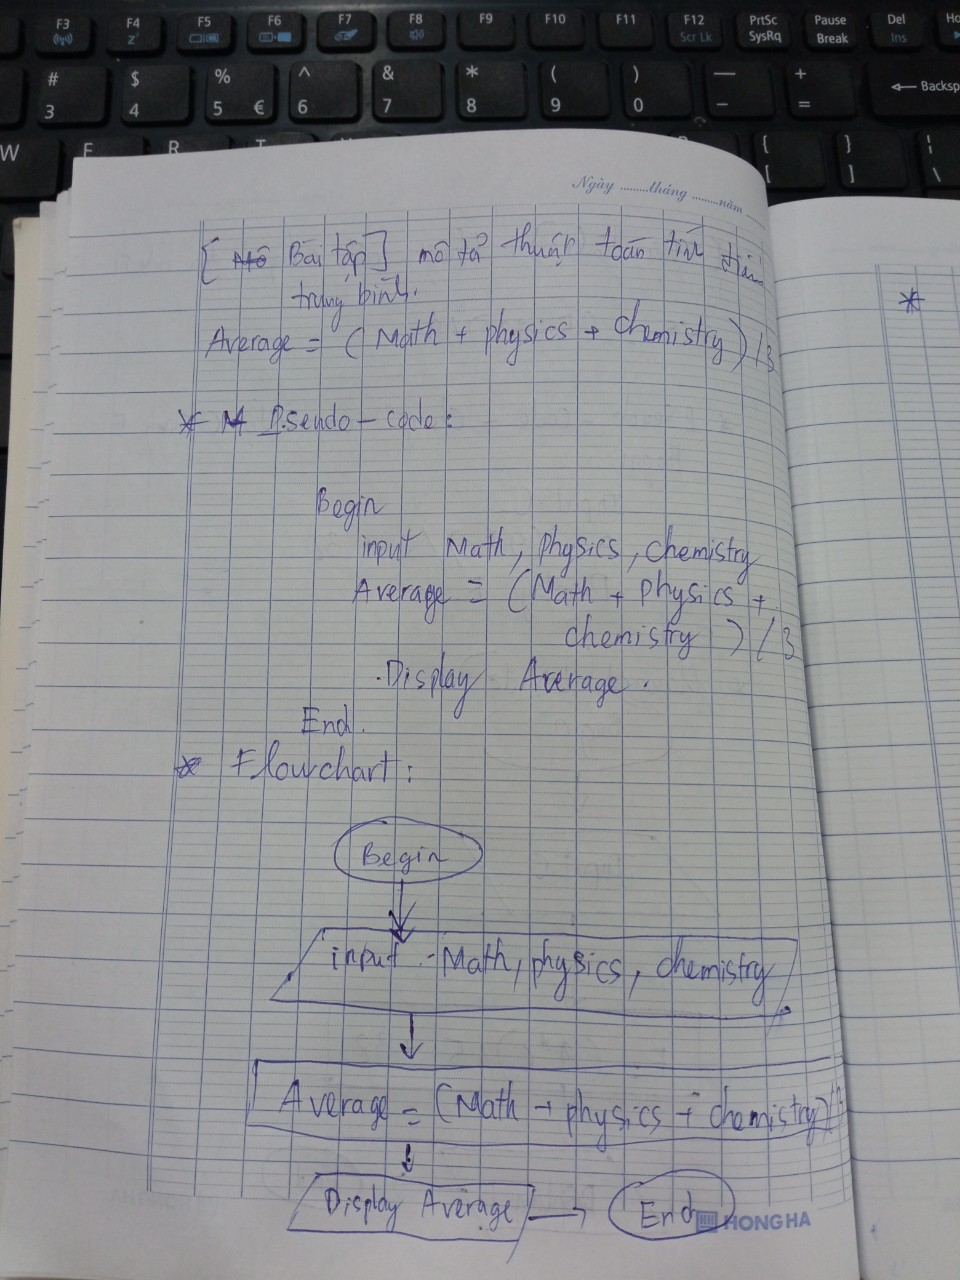 F3 F4 F5 F6 F7 F8 F9 F10 F11 F12 PrtSc Pause Del
Scr Lk SysRq Break Ins
# $ % ^ & * ( ) — +
3 4 5 € 6 7 8 9 0 - = Backsp
W E R T { } |
[ ] \
Ngày ........tháng ........năm
[Bài tập] mô tả thuật toán tính điểm
trung bình.
Average = (Math + physics + chemistry) / 3
* Pseudo-code:
Begin
input Math, physics, chemistry
Average = (Math + physics +
chemistry) / 3
Display Average.
End.
* Flowchart:
Begin
input - Math, physics, chemistry
Average = (Math + physics + chemistry)/3
Display Average
End
HONG HA
*